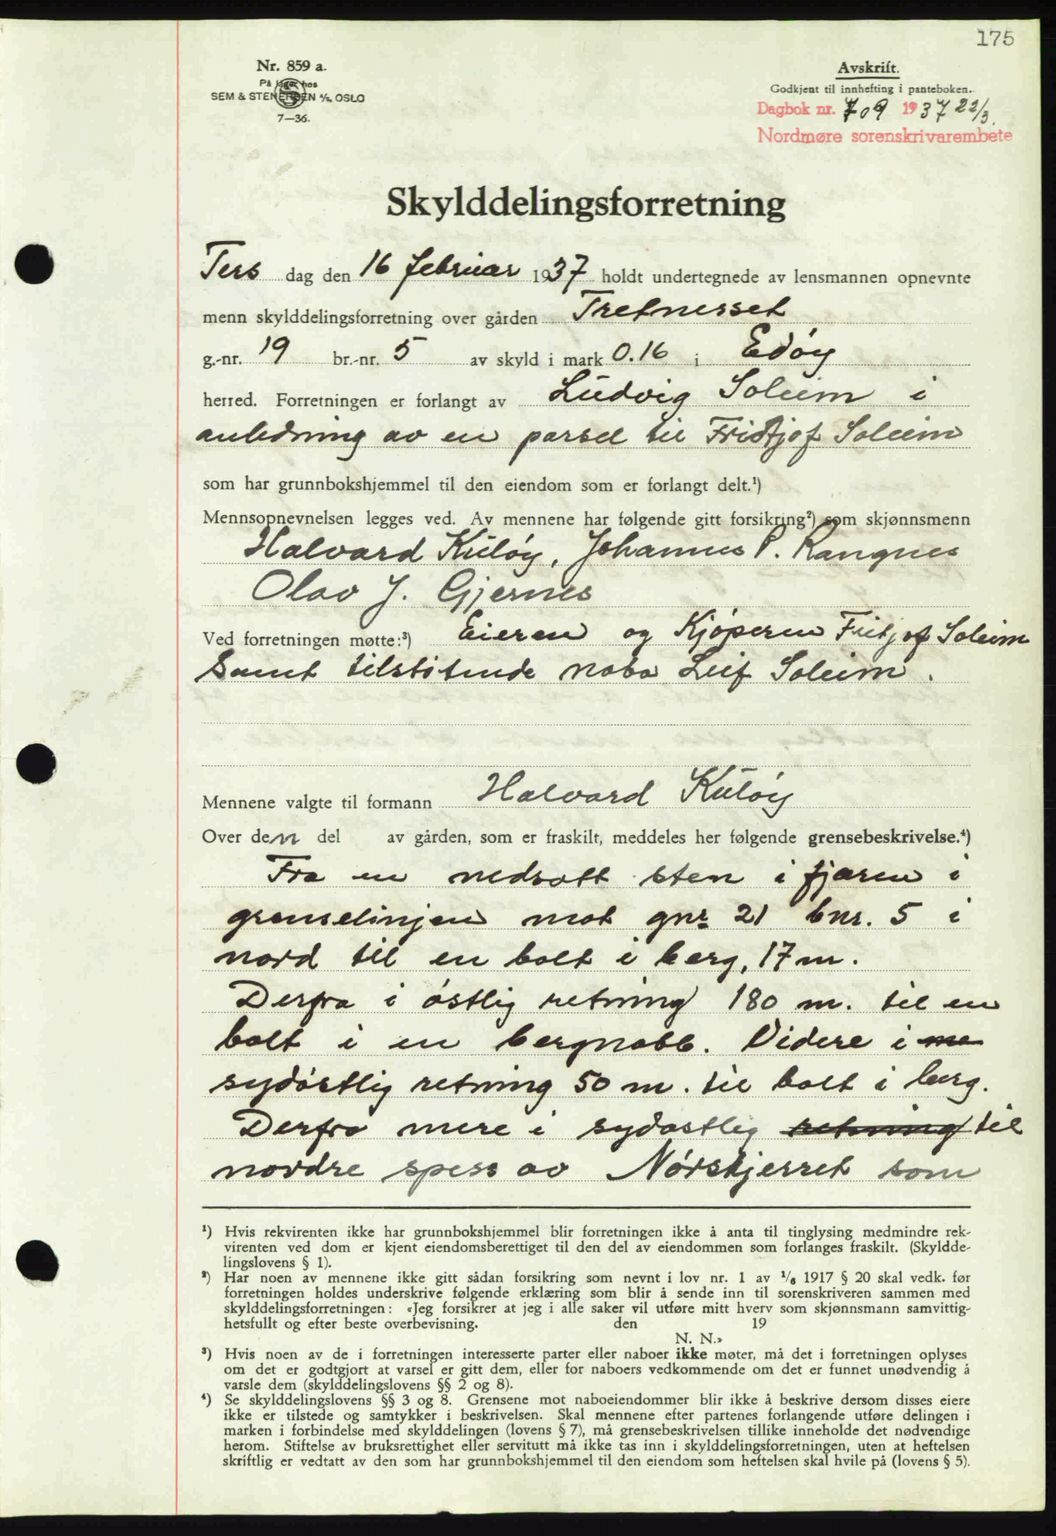 175
Nr. 859 a.
På lager hos
SEM & STENERSEN A/S, OSLO
7—36.
Avskrift.
Godkjent til innhefting i panteboken.
Dagbok nr. 709 1937 22/3.
Nordmøre sorenskrivarembete
Skylddelingsforretning
Tersdag den 16 februar 1937 holdt undertegnede av lensmannen opnevnte
menn skylddelingsforretning over gården Tretnesset
g.-nr. 19 br.-nr. 5 av skyld i mark 0.16 i Edøy
herred. Forretningen er forlangt av Ludvig Soleim i
anledning av en parsel til Fridtjof Soleim
som har grunnbokshjemmel til den eiendom som er forlangt delt.¹)
Mennsopnevnelsen legges ved. Av mennene har følgende gitt forsikring²) som skjønnsmenn
Halvard Kuløy, Johannes P. Rangnes
Olav J. Gjernes
Ved forretningen møtte:³) Eieren og Kjøperen Fritjof Soleim
Samt tilstøtende nabo Leif Soleim.
Mennene valgte til formann Halvard Kuløy
Over den del av gården, som er fraskilt, meddeles her følgende grensebeskrivelse.⁴)
Fra en nedsatt sten i fjæren i
grenselinjen mot gnr 21 bnr. 5 i
nord til en bolt i berg, 17 m.
Derfra i østlig retning 180 m. til en
bolt i en bergnabb. Videre i
sydøstlig retning 50 m. til bolt i berg.
Derfra mere i sydøstlig retning til
nordre spess av Nørskjerret som
¹) Hvis rekvirenten ikke har grunnbokshjemmel blir forretningen ikke å anta til tinglysing medmindre rek-
virenten ved dom er kjent eiendomsberettiget til den del av eiendommen som forlanges fraskilt. (Skyldde-
lingslovens § 1).
²) Har noen av mennene ikke gitt sådan forsikring som nevnt i lov nr. 1 av 1/6 1917 § 20 skal vedk. før
forretningen holdes underskrive følgende erklæring som blir å sende inn til sorenskriveren sammen med
skylddelingsforretningen: «Jeg forsikrer at jeg i alle saker vil utføre mitt hverv som skjønnsmann samvittig-
hetsfullt og efter beste overbevisning. den 19
N. N.»
³) Hvis noen av de i forretningen interesserte parter eller naboer ikke møter, må det i forretningen oplyses
om det er godtgjort at varsel er gitt dem, eller for naboers vedkommende om det er funnet unødvendig å
varsle dem (skylddelingslovens §§ 2 og 8).
⁴) Se skylddelingslovens §§ 3 og 8. Grensene mot naboeiendommer blir ikke å beskrive dersom disses eiere
ikke er tilstede og samtykker i beskrivelsen. Skal mennene efter partenes forlangende utføre delingen i
marken i forbindelse med skylddelingen (lovens § 7), må grensebeskrivelsen tillike inneholde det nødvendige
herom. Stiftelse av bruksrettighet eller servitutt må ikke tas inn i skylddelingsforretningen, uten at heftelsen
skriftlig er vedtatt av den som har grunnbokshjemmel til den eiendom som heftelsen skal hvile på (lovens § 5).